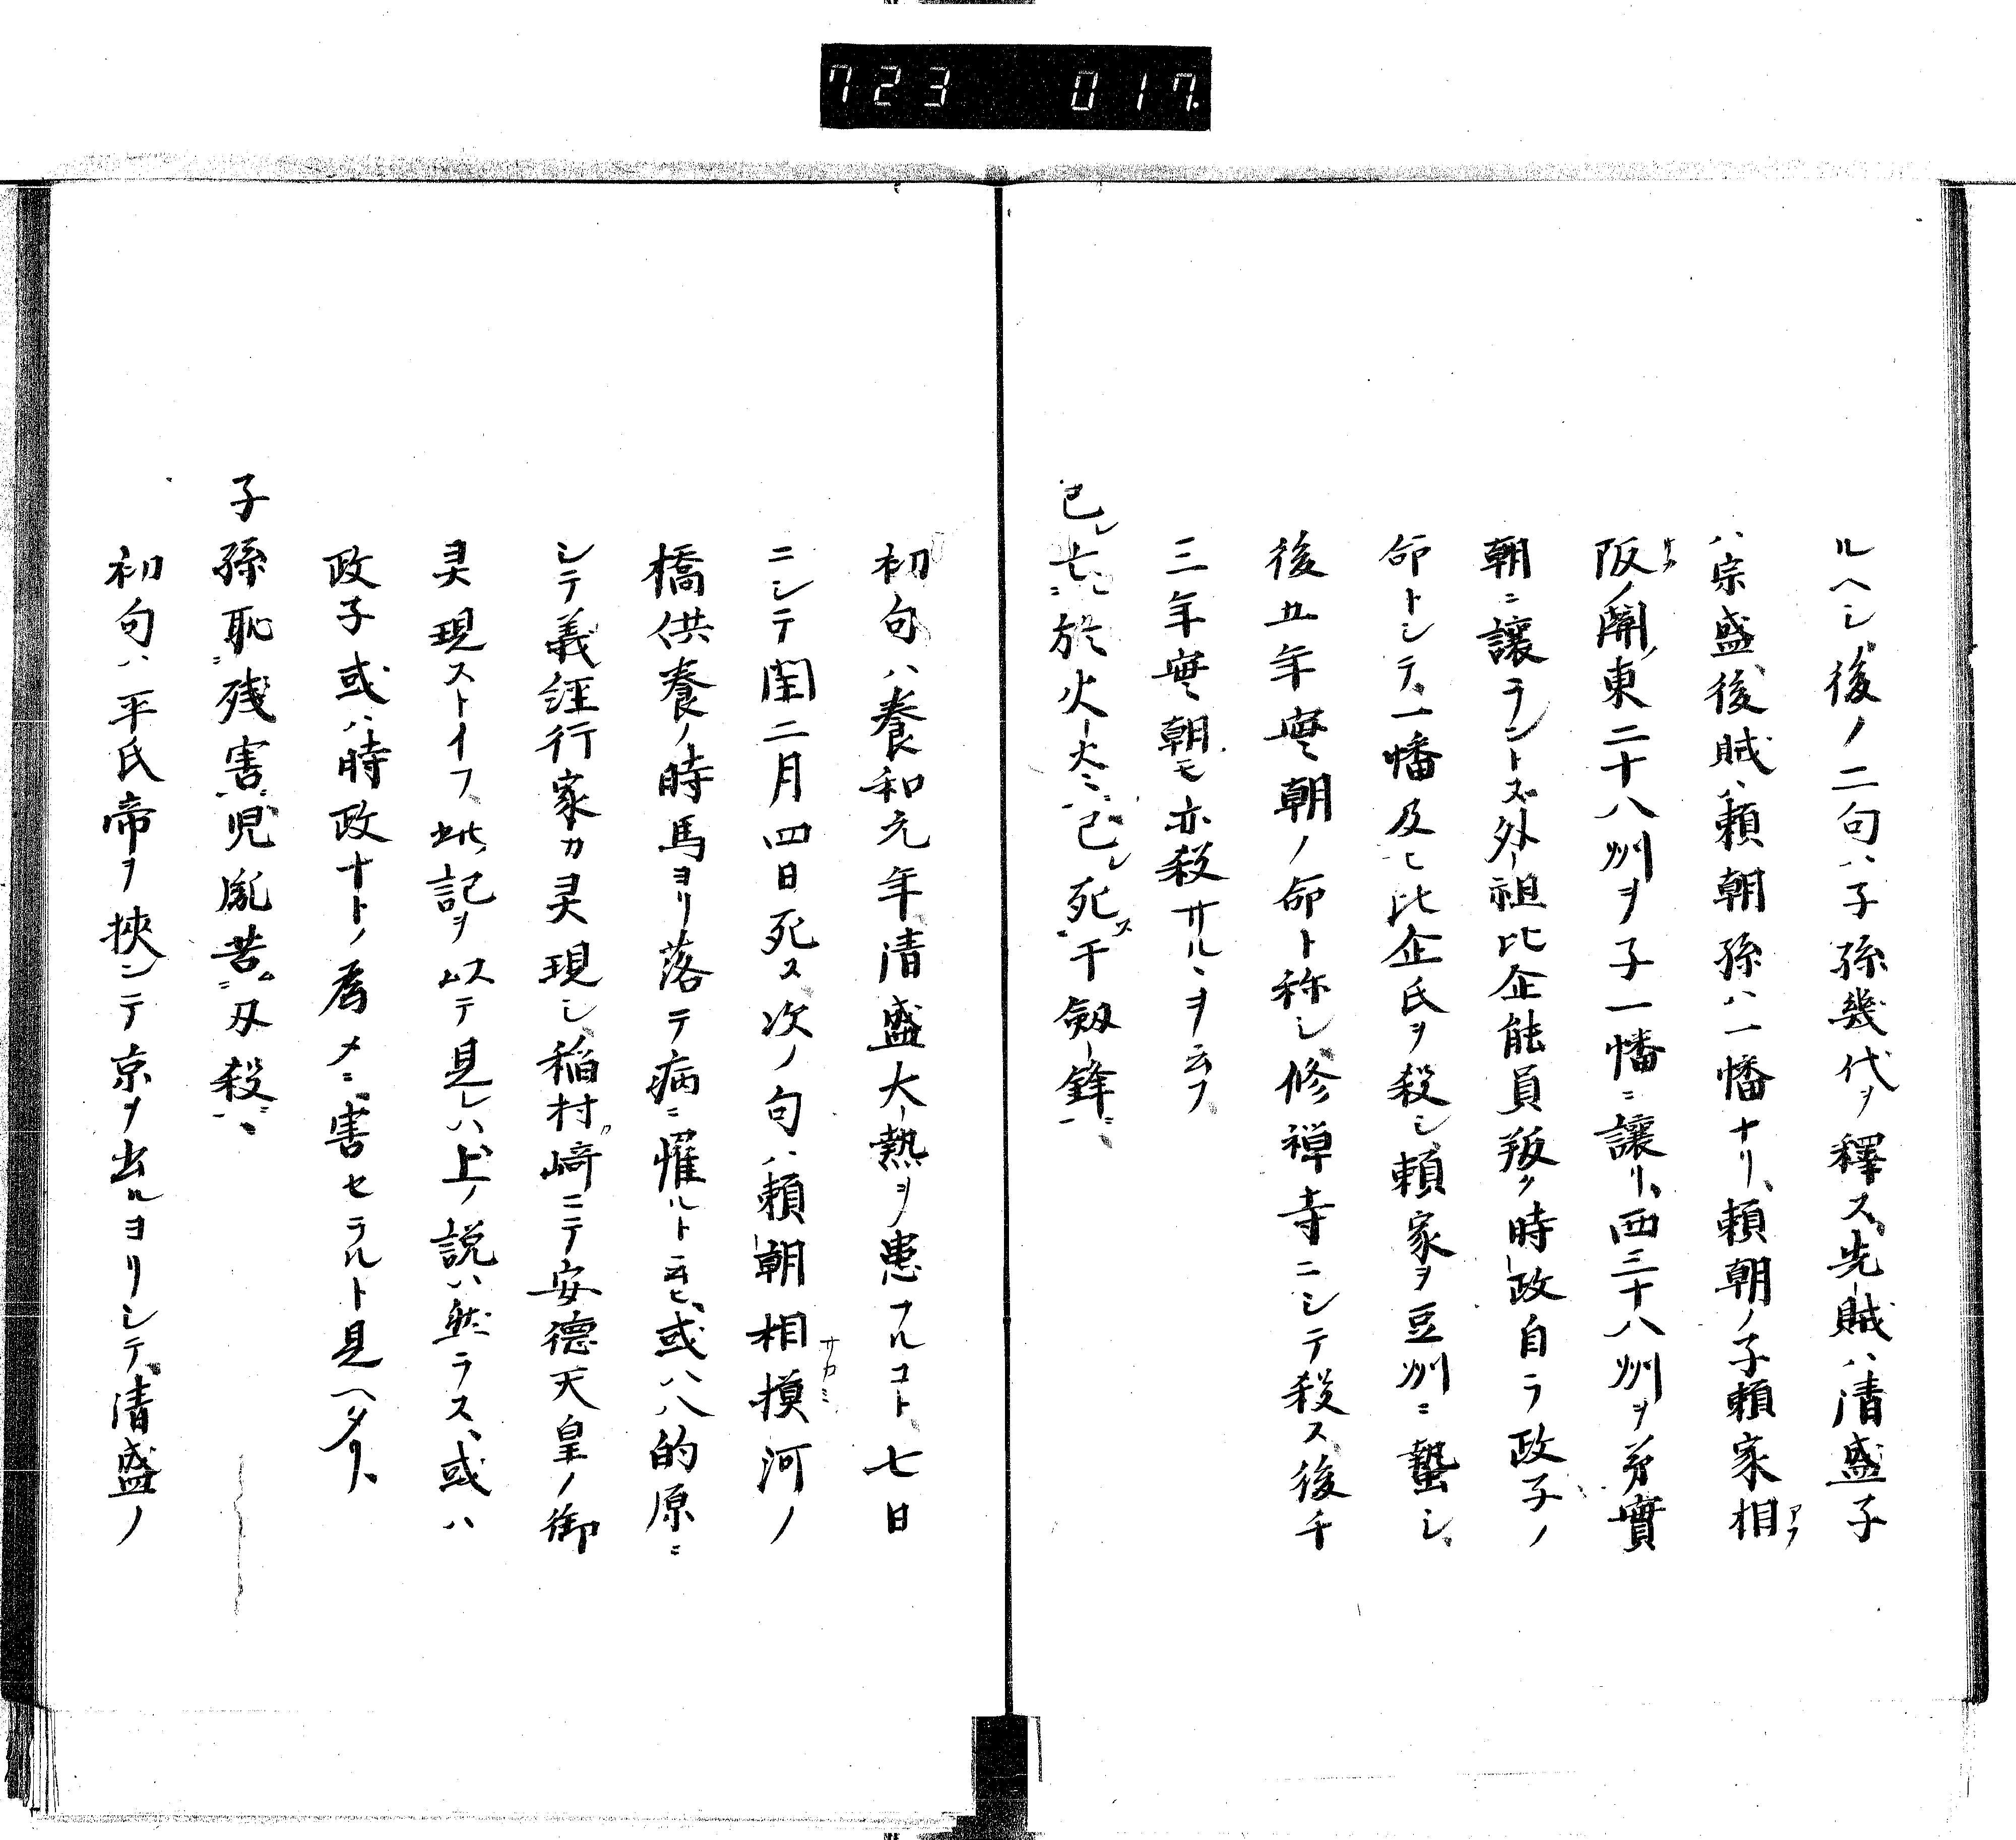 723 017
ルヘシ、後ノ二句ハ子孫幾代ヲ釋ス、先賊ハ清盛子
ハ宗盛後賊ハ頼朝孫ハ一幡ナリ、頼朝ノ子頼家相
阪ノ関東二十八州ヲ子一幡ニ讓リ、西三十八州ヲ弟實
朝ニ讓ラントス、外祖比企能員叛ク時政自ラ政子ノ
命トシテ、一幡及ヒ比企氏ヲ殺シ頼家ヲ豆州ニ蟄シ、
後五年實朝ノ命ト称シ修禅寺ニシテ殺ス後十
三年實朝モ亦殺サルヽヲ云フ
已レ亡ニ於火炎ニ已レ死ス干劔鋒ニ、
初句ハ養和元年清盛大熱ヲ患フルコト七日
ニシテ閏二月四日死ス次ノ句ハ頼朝相摸河ノ
橋供養ノ時馬ヨリ落テ病ニ罹ルト云ヒ、或ハ八的原ニ
シテ義経行家カ灵現シ、稲村崎ニテ安德天皇ノ御
灵現ストイフ、此記ヲ以テ見レハ上ノ説ハ然ラス、或ハ
政子或ハ時政ナトノ為メニ害セラルト見ヘタリ、
子孫恥残害児胤苦刃殺、
初句ハ平氏帝ヲ挾シテ京ヲ出ルヨリシテ、清盛ノ